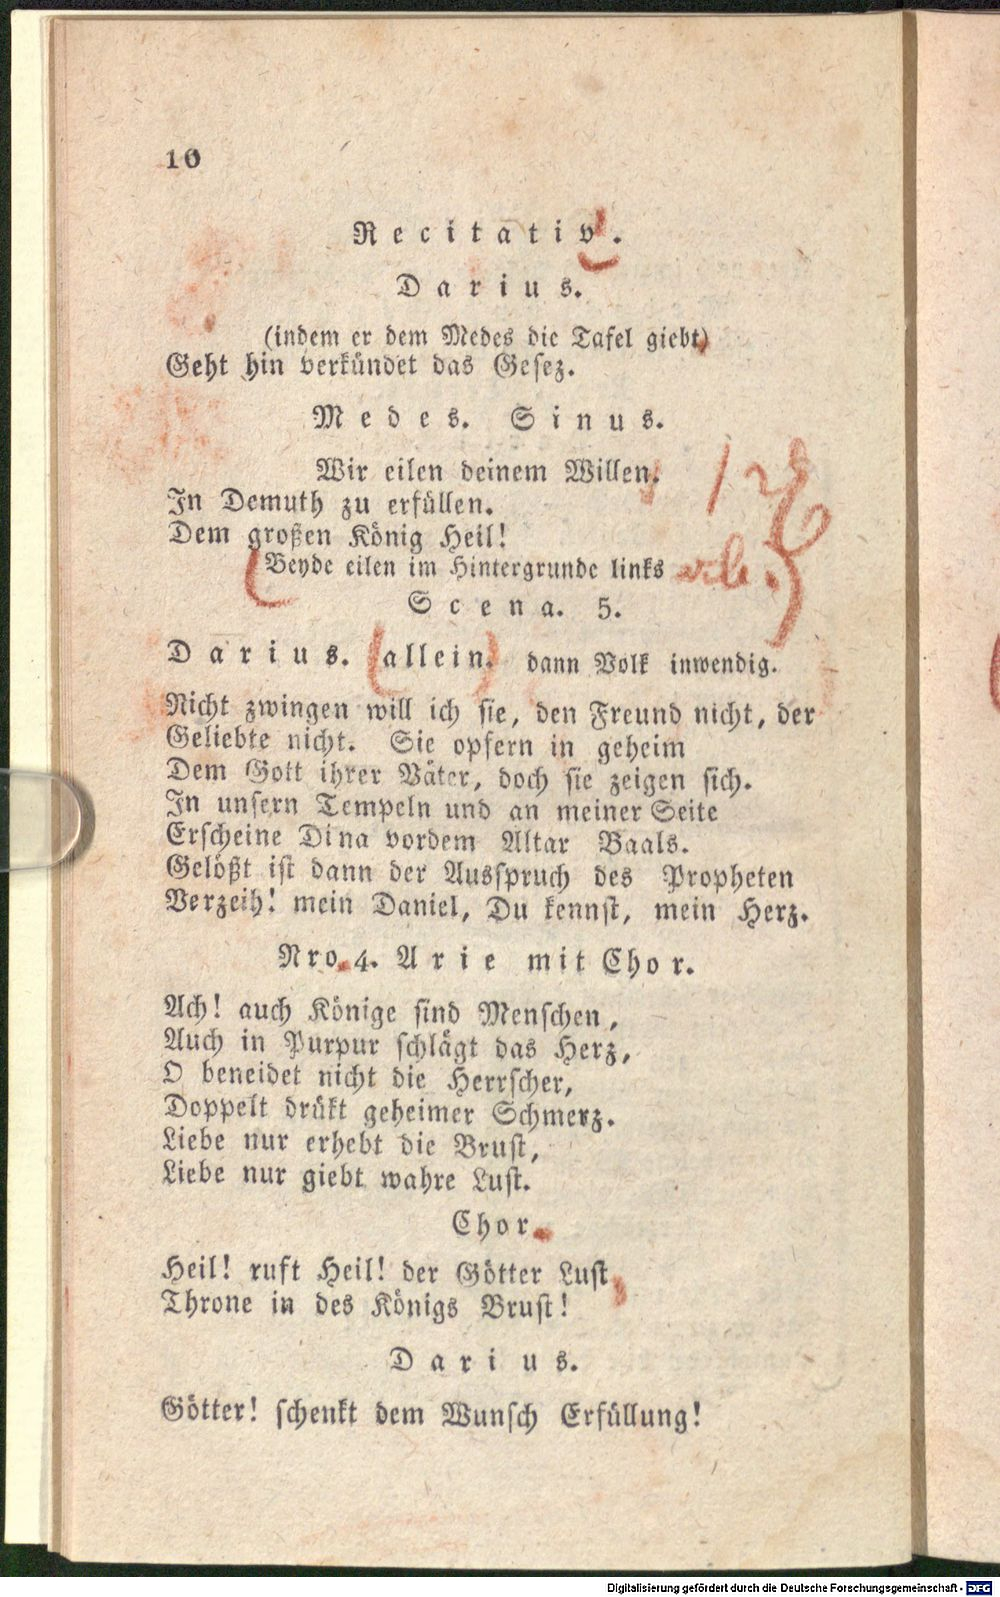 10
Recitativ.
Darius.
(indem er dem Medes die Tafel giebt)
Geht hin verkündet das Gesez.
Medes. Sinus.
Wir eilen deinem Willen.
In Demuth zu erfüllen.
Dem großen König Heil!
Beyde eilen im Hintergrunde links ab.)
Scena. 5.
Darius. (allein) dann Volk inwendig.
Nicht zwingen will ich sie, den Freund nicht, der
Geliebte nicht. Sie opfern in geheim
Dem Gott ihrer Väter, doch sie zeigen sich.
In unsern Tempeln und an meiner Seite
Erscheine Dina vordem Altar Baals.
Gelößt ist dann der Ausspruch des Propheten
Verzeih! mein Daniel, Du kennst, mein Herz.
Nro. 4. Arie mit Chor.
Ach! auch Könige sind Menschen,
Auch in Purpur schlägt das Herz,
O beneidet nicht die Herrscher,
Doppelt drükt geheimer Schmerz.
Liebe nur erhebt die Brust,
Liebe nur giebt wahre Lust.
Chor.
Heil! ruft Heil! der Götter Lust
Throne in des Königs Brust!
Darius.
Götter! schenkt dem Wunsch Erfüllung!
Digitalisierung gefördert durch die Deutsche Forschungsgemeinschaft - DFG